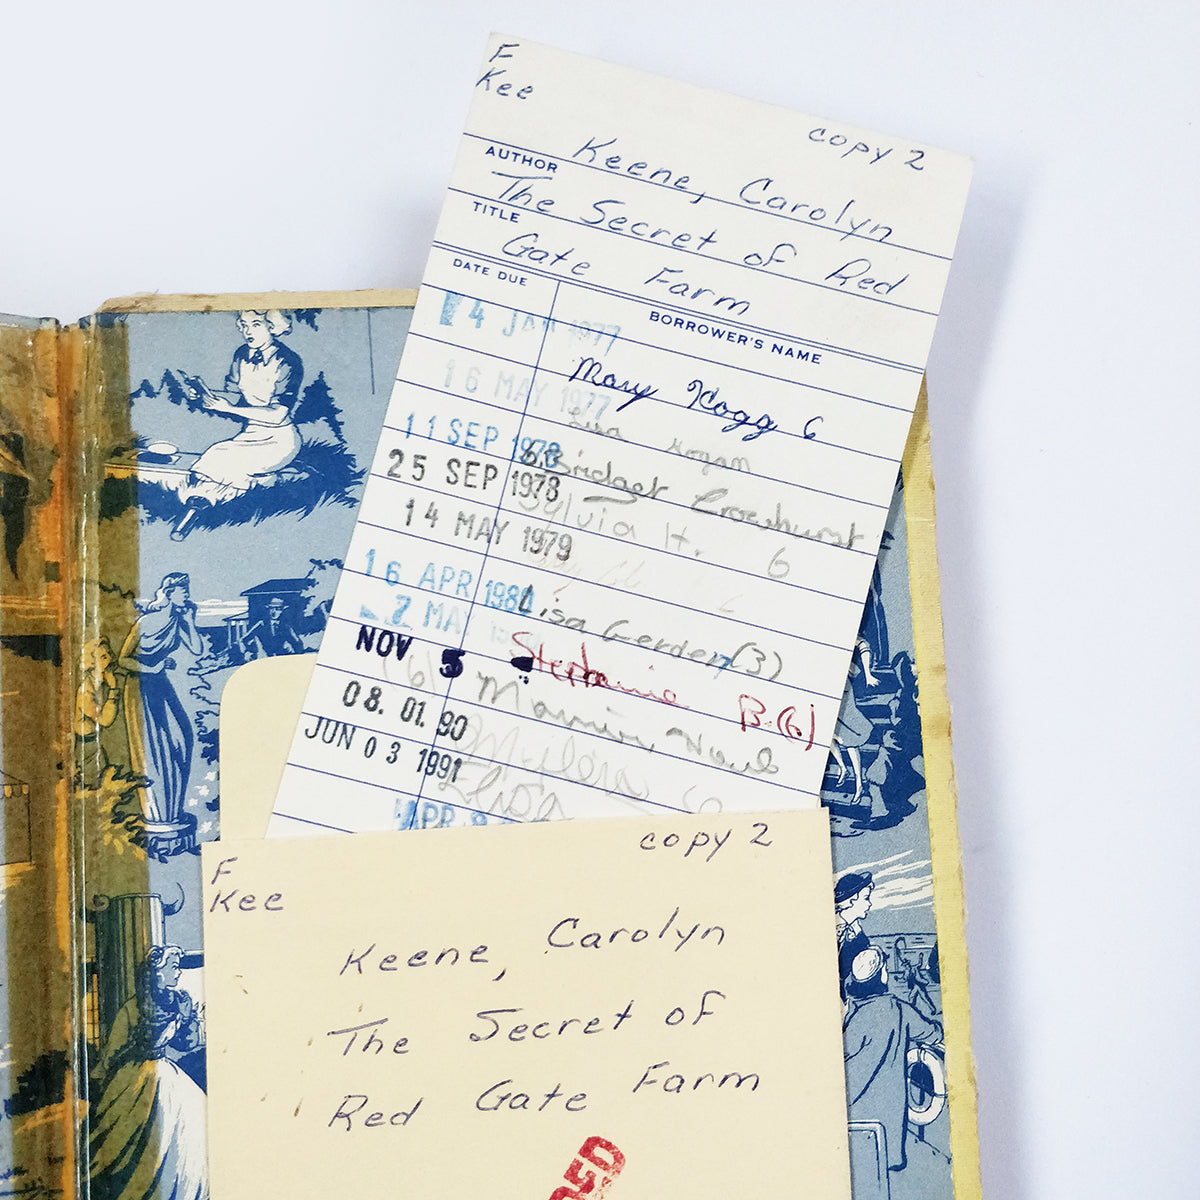 F
Kee
copy 2
AUTHOR Keene, Carolyn
TITLE The Secret of Red
Gate Farm
DATE DUE BORROWER'S NAME
14 JAN 1977
Mary Hogg 6
16 MAY 1977
Lisa Hogan
11 SEP 1978
Bridget Crowhurst
25 SEP 1978
Sylvia H. 6
14 MAY 1979
16 APR 1980 Lisa Gerden (3)
2 MAY
Stephanie B. (6)
NOV 5
(6)
08. 01. 90
JUN 03 1991
APR
F
Kee
copy 2
Keene, Carolyn
The Secret of
Red Gate Farm